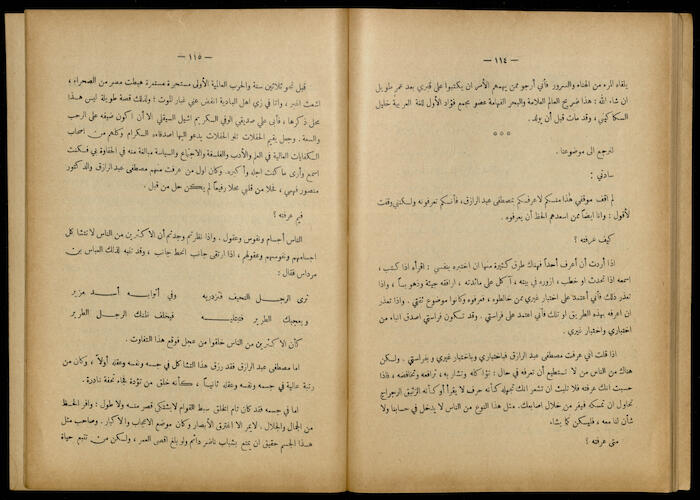 — ١١٤ —
يلقاه المرء من الهناء والسرور فأني أرجو ممن يهمهم الأمر ان يكتبوا على قبري بعد عمر طويل
ان شاء الله : هذا ضريح العالم العلامة والبحر الفهامة عضو مجمع فؤاد الأول للغة العربية خليل
السكاكيني ، وقد مات قبل أن يولد.
* * *
لنرجع الى موضوعنا .
سادتي :
لم اقف موقفي هذا منكم لاعرفكم بمصطفى عبد الرازق، فأنكم تعرفونه ولكنني وقفت
لأقول : وانا ايضاً ممن اسعدهم الحظ أن يعرفوه .
كيف عرفته ؟
اذا أردت أن أعرف أحداً فهناك طرق كثيرة منها ان اختبره بنفسي : اقرأه اذا كتب ،
اسمعه اذا تحدث او خطب ، ازوره في بيته ، آكل على مائدته ، ارافقه جيئة وذهوباً ، واذا
تعذر ذلك فأني أعتمد على اختبار غيري ممن خالطوه ، فعرفوه وكانوا موضوع ثقتي . واذا تعذر
ان اعرفه بهذه الطريق او تلك فأني أعتمد على فراستي . وقد تكون فراستي اصدق انباء من
اختباري واختبار غيري .
اذا قلت اني عرفت مصطفى عبد الرازق فباختباري وباختبار غيري وبفراستي . ولكن
هناك من الناس من لا تستطيع أن تعرفه في حال : تؤاكله وتشار به ، ترافعه وتخافضه ، فاذا
حسبت انك عرفته فلا تلبث ان تشعر انك تجهله كأنه حرف لا يقرأ أو كأنه الزئبق الرجراج
تحاول ان تمسكه فيفر من خلال اصابعك. مثل هذا النوع من الناس لا يدخل في حسابنا ولا
شأن لنا معه ، فليكن كما يشاء
متى عرفته ؟
— ١١٥ —
قبل نحو ثلاثين سنة والحرب العالمية الأولى مستحرة مستمرة هبطت مصر من الصحراء ،
اشعث اغبر ، وانا في زي اهل البادية انفض عني غبار الموت ؛ ولذلك قصة طويلة ليس هذا
محل ذكرها ، فأبى علي صديقي الوفي الكريم اشيل السيقلي الا أن اكون ضيفه على الرحب
والسعة . وجعل يقيم الحفلات تلو الحفلات يدعو اليها اصدقاءه الكرام وكلهم من اصحاب
الكفايات العالية في العلم والأدب والفلسفة والاجتماع والسياسة مبالغة منه في الحفاوة بي فسكنت
اسمع وأرى ما كنت اجله وأكبره. وكان اول من عرفت منهم مصطفى عبد الرازق والدكتور
منصور فهمي ، فحلا من قلبي محلا رفيعاً لم يكن حل من قبل .
فيم عرفته ؟
الناس أجسام ونفوس وعقول . واذا نظرتم وجدتم أن الاكثرين من الناس لا تتشاكل
اجسامهم ونفوسهم وعقولهم ، اذا ارتقى جانب انحط جانب ، وقد تنبه لذلك العباس بن
مرداس فقال :
ترى الرجل النحيف فتزدريه وفي أثوابه أسد مزير
ويعجبك الطرير فتبتليه فيخلف ظنك الرجل الطرير
كأن الاكثرين من الناس خلقوا من عجل فوقع هذا التفاوت .
اما مصطفى عبد الرازق فقد رزق هذا التشاكل في جسمه ونفسه وعقله أولاً ، وكان من
رتبة عالية في جسمه ونفسه وعقله ثانياً ، كأنه خلق من تؤدة فجاء تحفة نادرة .
اما في جسمه فقد كان تام الخلق سبط القوام لا يشتكى قصر منه ولا طول : وافر الحظ
من الجمال والجلال . لا يمر الا اخترق الأبصار وكان موضع الاعجاب والاكبار . وصاحب مثل
هذا الجسم حقيق ان يمتع بشباب ناضر دائم ولو بلغ اقصى العمر ، ولكن من تتبع حياة